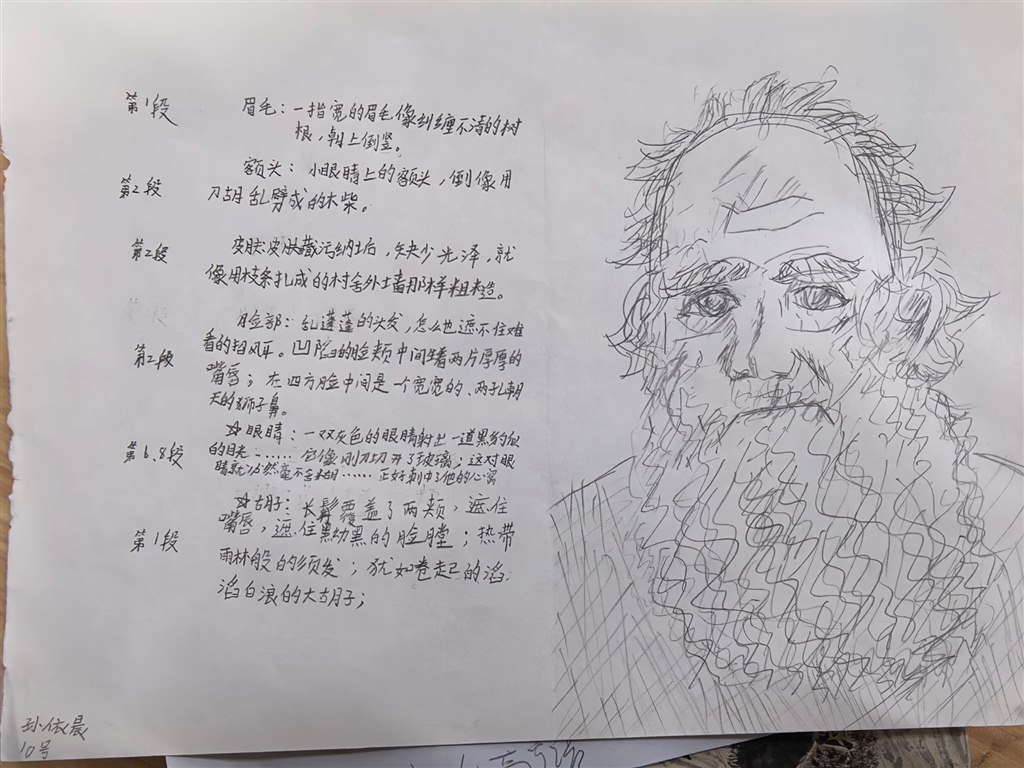 第1段 眉毛：一指宽的眉毛像纠缠不清的树
根，朝上倒竖。
额头：小眼睛上的额头，倒像用
第2段 刀胡乱劈成的木柴。
第2段 皮肤：皮肤藏污纳垢，缺少光泽，就
像用枝条扎成的村舍外墙那样粗糙。
脸部：乱蓬蓬的头发，怎么也遮不住难
看的招风耳。凹陷的脸颊中间生着两片厚厚的
第2段 嘴唇；在四方脸中间是一个宽宽的、两孔朝
天的狮子鼻。
眼睛：一双灰色的眼睛射出一道黑豹似
第6.8段 的目光……它像刚刀切开了玻璃；这对眼
睛就必然毫不含糊……正好刺中了他的心窝
胡子：长髯覆盖了两颊，遮住
第1段 嘴唇，遮住黝黑的脸膛；热带
雨林般的须发；犹如卷起的滔
滔白浪的大胡子；
孙依晨
10号